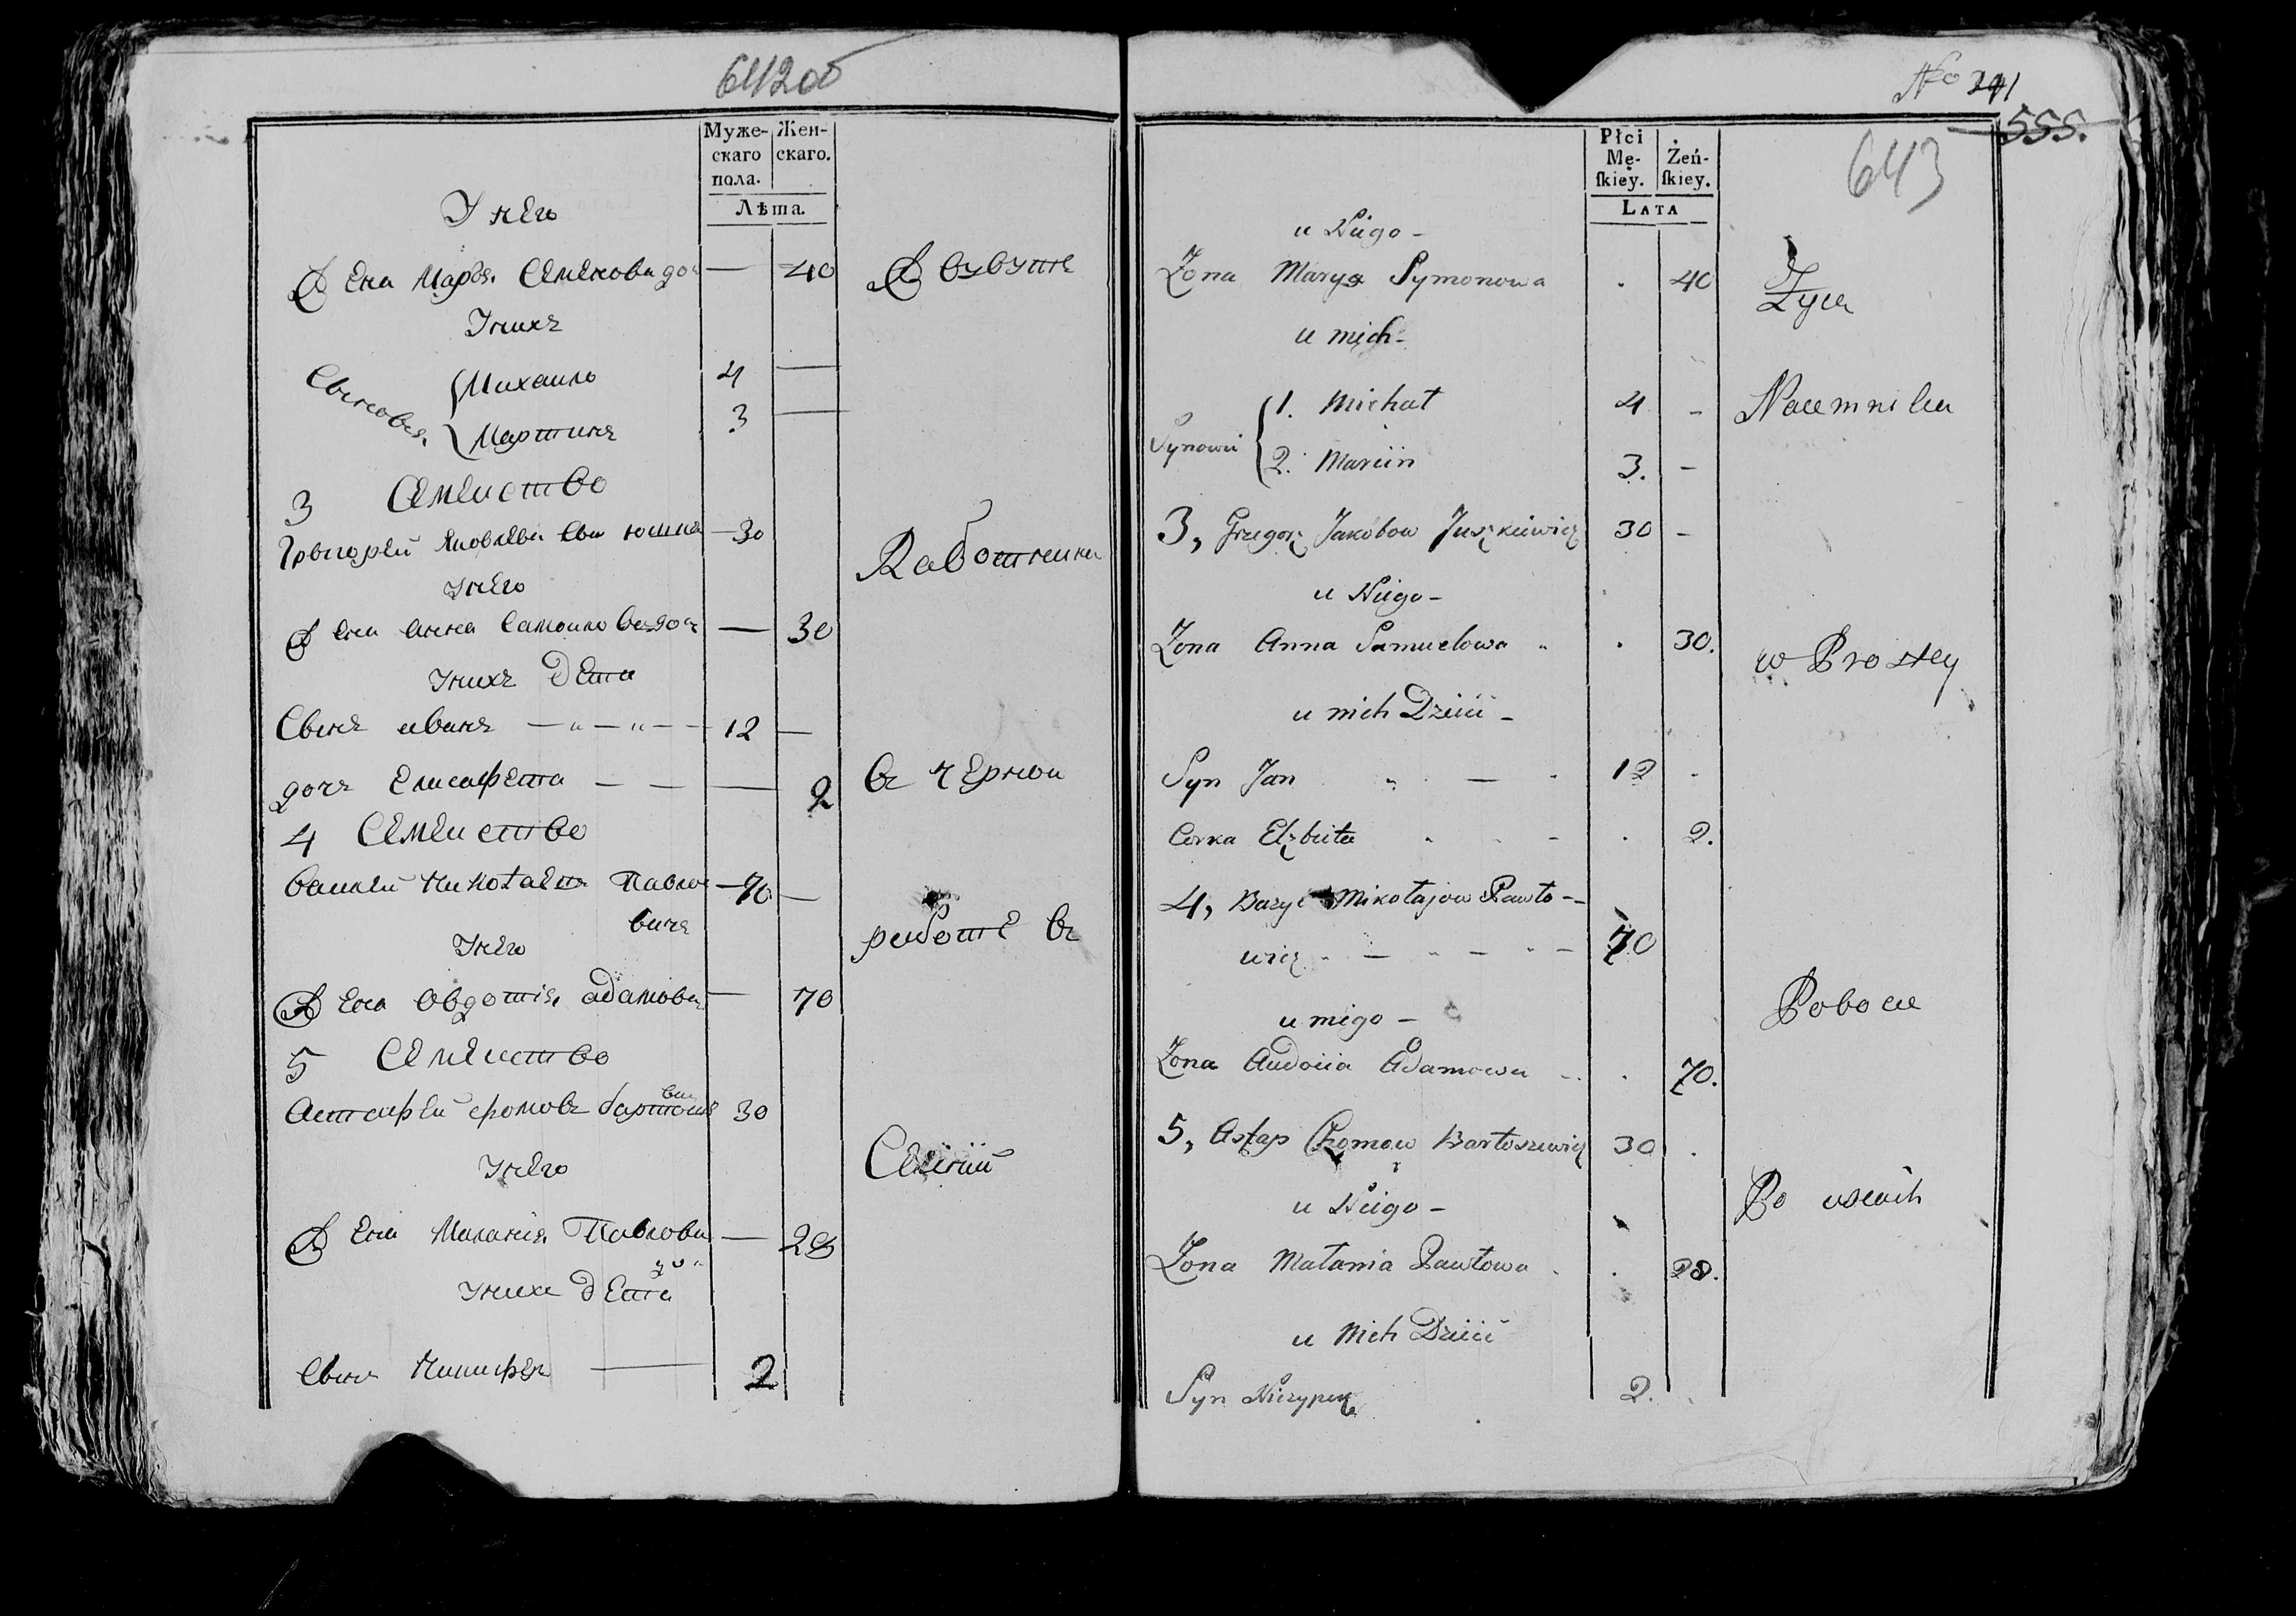 Муже-
скаго
пола.
Жен-
скаго.
Лѣта.
У него
Жена Марья Семенова доч — 40
Живутъ
У нихъ
Сыновья
Михаилъ 4 —
Мартинъ 3 —
3 Семейство
Григорей Яковлевъ Сынъ —30
Работники
У него
Жена Анна Самойлова доч — 30
У нихъ дети
Сынъ иванъ — „ — „ — — 12 —
дочъ Елисафета — — — 2
въ черной
4 Семейство
Василей Николаевъ Павло —70 —
вичъ
работе въ
У него
Жена Овдотія адамова — 70
5 Семейство
Астафей 30
У него
Жена Маланія Павлова — 28
доч
У нихъ дети
Сынъ Никифоръ — 2
No 241
555.
643
Płci
Mę-
ſkiey.
Żeń-
ſkiey.
LATA
u Niego -
Zona Marya Symonowa . 40
Zyią
u nich -
Synowie
1. Michał 4 -
Naiemnika
2. Marcin 3. -
3, Grzegorz Jakobow Juszkiewicz 30 -
u Niego -
Zona Anna Samuelowa „ . 30.
w Prostey
u nich Dzieci -
Syn Jan „ — . 12 .
Corka Elzbieta . . - . 2.
4, Bazyl Mikołajow Pawło--
wicz - — - — - — 70
Robocie
u niego -
Zona Audocia Adamowa - . . 70.
5, Astap Chomow Bartoszewicz 30 .
Po wsiach
u Niego -
Zona Małania Pawłowa . . 28.
u Nich Dzieci
Syn Niczyper 2. .